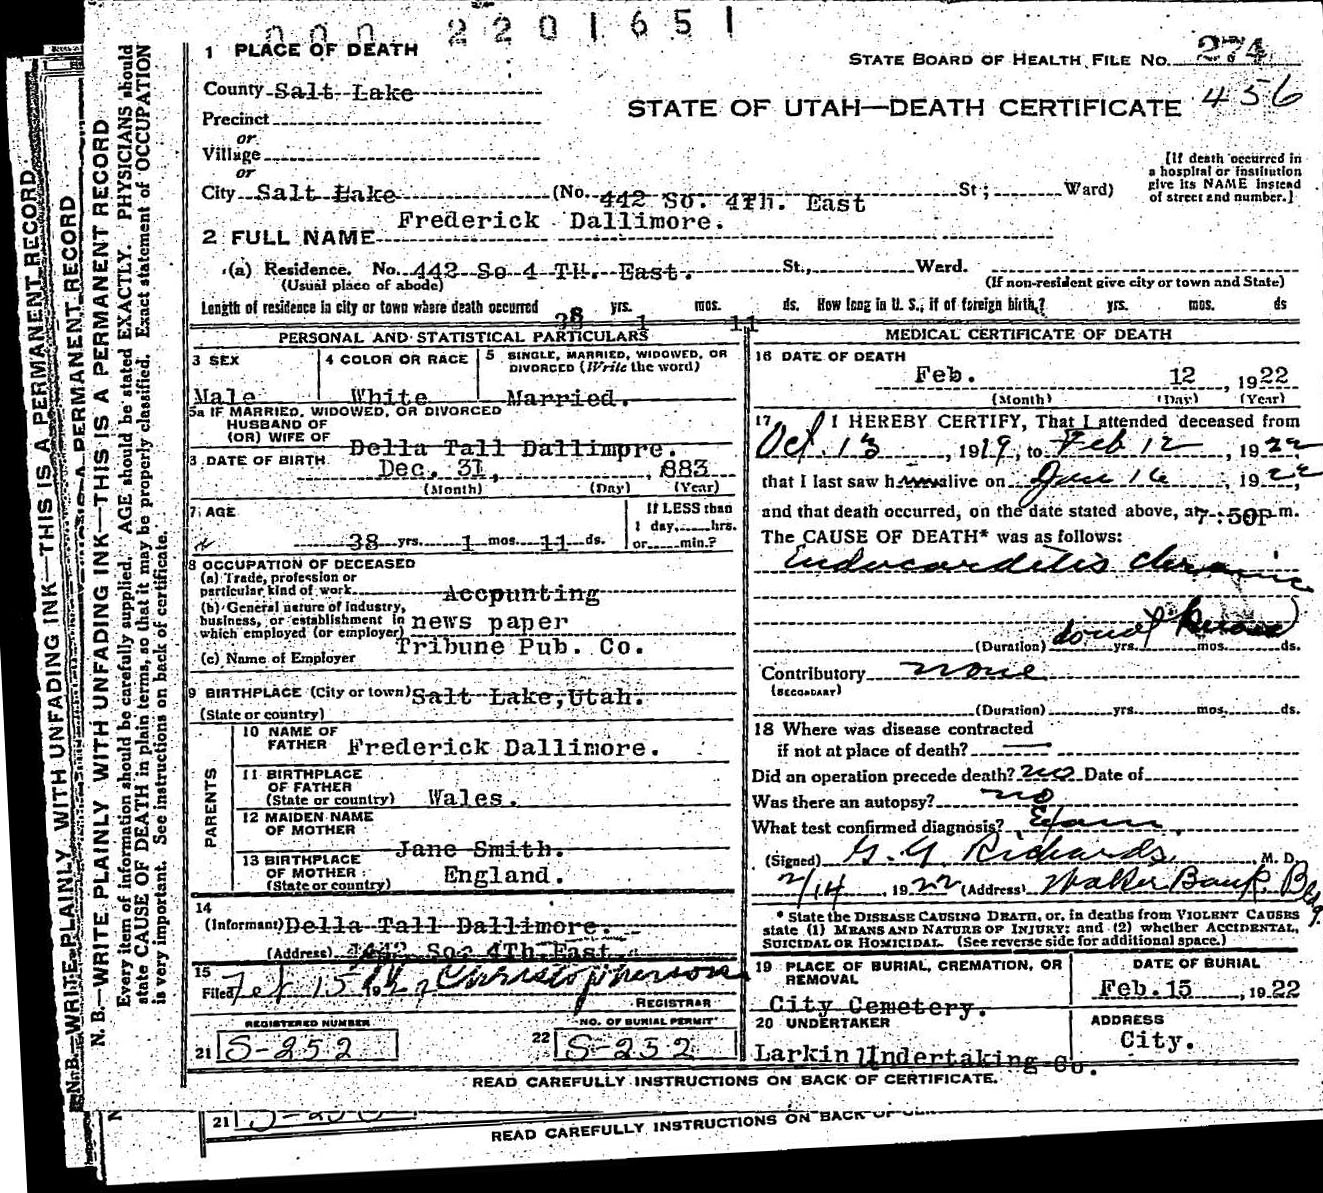 000 2201651
1 PLACE OF DEATH
STATE BOARD OF HEALTH FILE No. 274
456
County Salt Lake
STATE OF UTAH—DEATH CERTIFICATE
Precinct
or
Village
or
[If death occurred in
a hospital or institution
give its NAME instead
of street and number.]
City Salt Lake (No. 442 So. 4Th. East St; Ward)
2 FULL NAME Frederick Dallimore.
(a) Residence. No. 442 So 4 TH. East. St., Ward.
(Usual place of abode) (If non-resident give city or town and State)
Length of residence in city or town where death occurred 38 yrs. 1 mos. 11 ds. How long in U. S., if of foreign birth? yrs. mos. ds
PERSONAL AND STATISTICAL PARTICULARS
3 SEX
Male
4 COLOR OR RACE
White
5 SINGLE, MARRIED, WIDOWED, OR
DIVORCED (Write the word)
Married.
5a IF MARRIED, WIDOWED, OR DIVORCED
HUSBAND OF
(OR) WIFE OF Della Tall Dallimore.
6 DATE OF BIRTH Dec. 31, 1883
(Month) (Day) (Year)
7 AGE
38 yrs. 1 mos. 11 ds.
If LESS than
1 day, hrs.
or min.?
8 OCCUPATION OF DECEASED
(a) Trade, profession or
particular kind of work Accpunting
(b) General nature of industry,
business, or establishment in
which employed (or employer) news paper
(c) Name of Employer Tribune Pub. Co.
9 BIRTHPLACE (City or town) Salt Lake, Utah.
(State or country)
PARENTS
10 NAME OF
FATHER Frederick Dallimore.
11 BIRTHPLACE
OF FATHER
(State or country) Wales.
12 MAIDEN NAME
OF MOTHER
Jane Smith.
13 BIRTHPLACE
OF MOTHER
(State or country) England.
14
(Informant) Della Tall Dallimore.
(Address) 4442 So. 4Th East.
15
Filed Feb 15 Christopherson
REGISTRAR
REGISTERED NUMBER
21 S-252
NO. OF BURIAL PERMIT
22 S-252
MEDICAL CERTIFICATE OF DEATH
16 DATE OF DEATH
Feb. 12, 1922
(Month) (Day) (Year)
17 I HEREBY CERTIFY, That I attended deceased from
Oct. 13, 1919, to Feb 12, 1922,
that I last saw him alive on Jan 16, 1922,
and that death occurred, on the date stated above, at 7:50P m.
The CAUSE OF DEATH* was as follows:
Endocarditis chronic
(Duration) yrs. mos. ds.
Contributory none
(SECONDARY)
(Duration) yrs. mos. ds.
18 Where was disease contracted
if not at place of death? —
Did an operation precede death? no Date of
Was there an autopsy? no
What test confirmed diagnosis? Exam.
(Signed) G. G. Richards, M. D.
2/14, 1922 (Address) Walker Bank Bldg.
* State the DISEASE CAUSING DEATH, or, in deaths from VIOLENT CAUSES
state (1) MEANS AND NATURE OF INJURY; and (2) whether ACCIDENTAL,
SUICIDAL OR HOMICIDAL. (See reverse side for additional space.)
19 PLACE OF BURIAL, CREMATION, OR
REMOVAL
City Cemetery.
DATE OF BURIAL
Feb. 15, 1922
20 UNDERTAKER
Larkin Undertaking Co.
ADDRESS
City.
READ CAREFULLY INSTRUCTIONS ON BACK OF CERTIFICATE.
21
READ CAREFULLY INSTRUCTIONS ON BACK OF
N. B.—WRITE PLAINLY WITH UNFADING INK—THIS IS A PERMANENT RECORD
Every item of information should be carefully supplied. AGE should be stated EXACTLY. PHYSICIANS should
state CAUSE OF DEATH in plain terms, so that it may be properly classified. Exact statement of OCCUPATION
is very important. See instructions on back of certificate.
N. B.—WRITE PLAINLY WITH UNFADING INK—THIS IS A PERMANENT RECORD
A PERMANENT RECORD